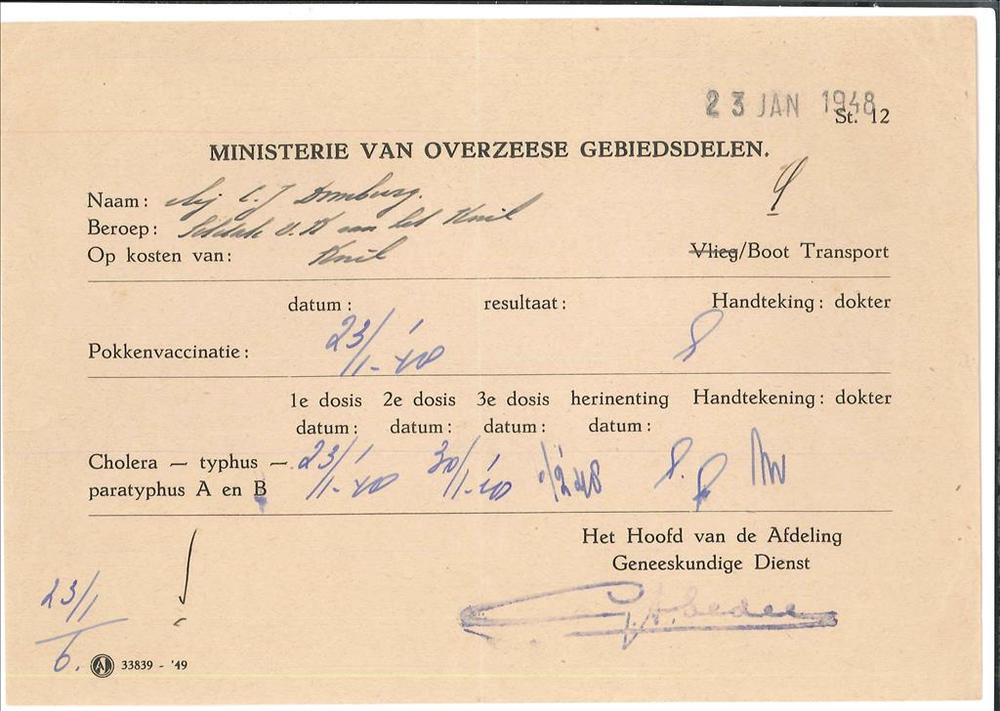 23 JAN 1948
St. 12
MINISTERIE VAN OVERZEESE GEBIEDSDELEN.
Naam: C. J.
Beroep: Soldaat v. h. Knil
Op kosten van: Knil
Vlieg/Boot Transport
datum: resultaat: Handteking: dokter
Pokkenvaccinatie: 23/1-48
1e dosis 2e dosis 3e dosis herinenting Handtekening: dokter
datum: datum: datum: datum:
Cholera — typhus — 23/1-48 30/1-48 2-48
paratyphus A en B
Het Hoofd van de Afdeling
Geneeskundige Dienst
23/1
6.
33839 - '49